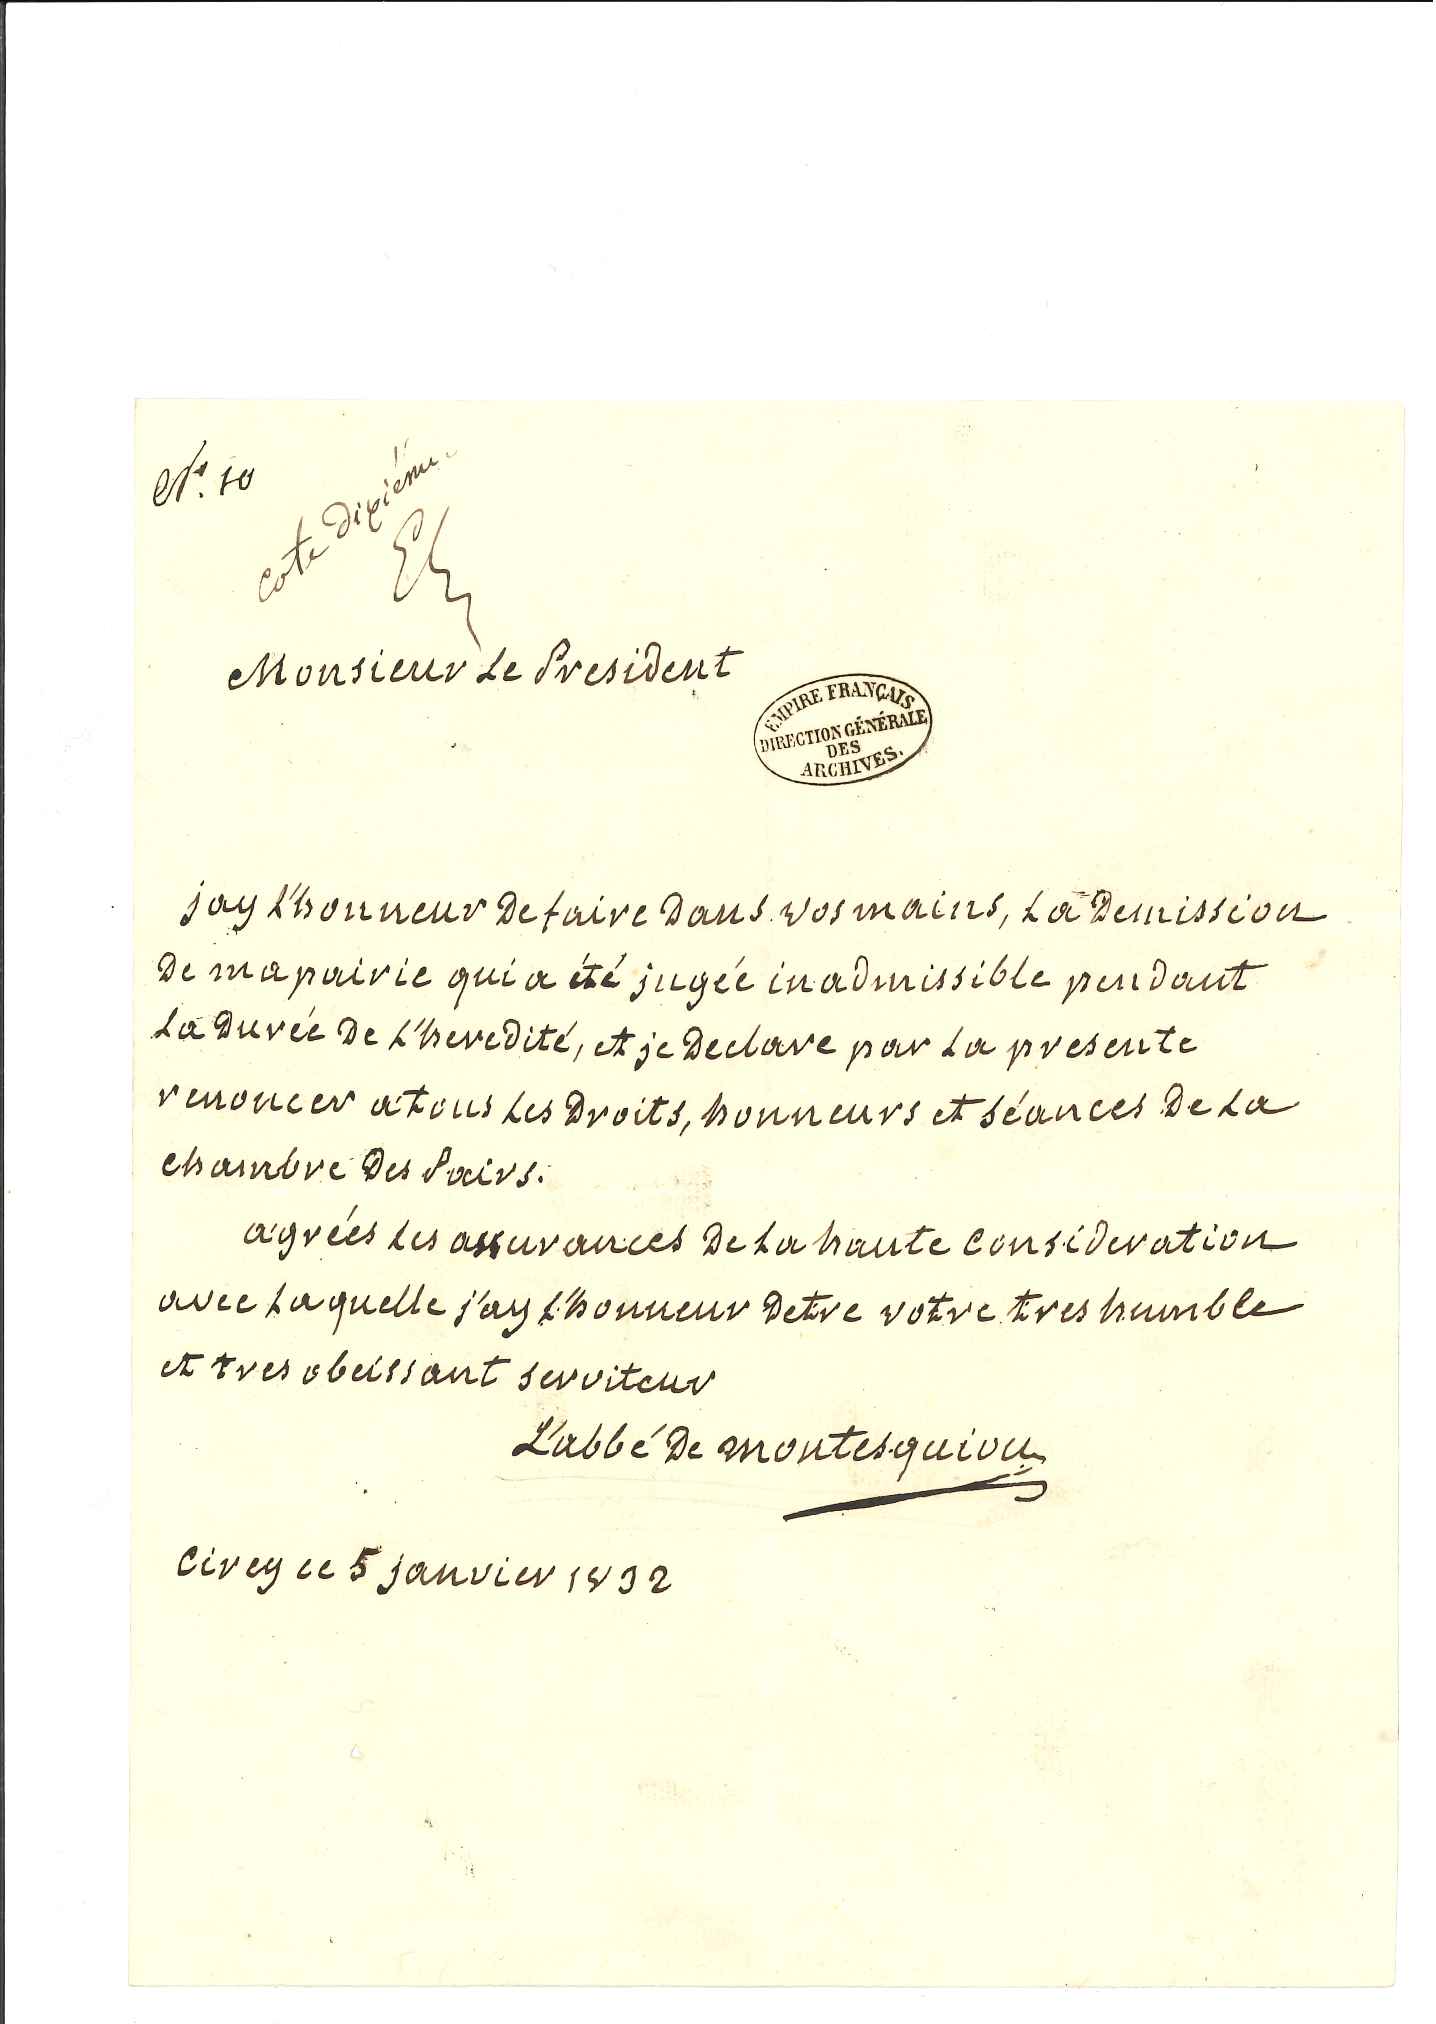 N°. 10
cote dixiéme
Monsieur Le President
EMPIRE FRANÇAIS
DIRECTION GÉNÉRALE
DES
ARCHIVES.
jay L'honneur De faire Dans vos mains, La Demission
De ma pairie qui a été jugée inadmissible pendant
La Durée De L'heredité, et je Declare par La presente
renoncer a tous Les Droits, honneurs et séances De La
chambre Des Pairs.
agrées Les assurances De La haute consideration
avec Laquelle j'ay L'honneur Detre votre tres humble
et tres obeissant serviteur
L'abbé De montesquiou
Cirey ce 5 janvier 1832